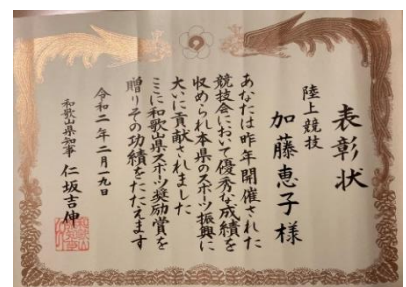 表彰状
陸上競技
加藤恵子様
あなたは昨年開催された
競技会において優秀な成績を
収められ本県のスポーツ振興に
大いに貢献されました
ここに和歌山県スポーツ奨励賞を
贈りその功績をたたえます
令和二年二月一九日
和歌山県知事 仁坂吉伸